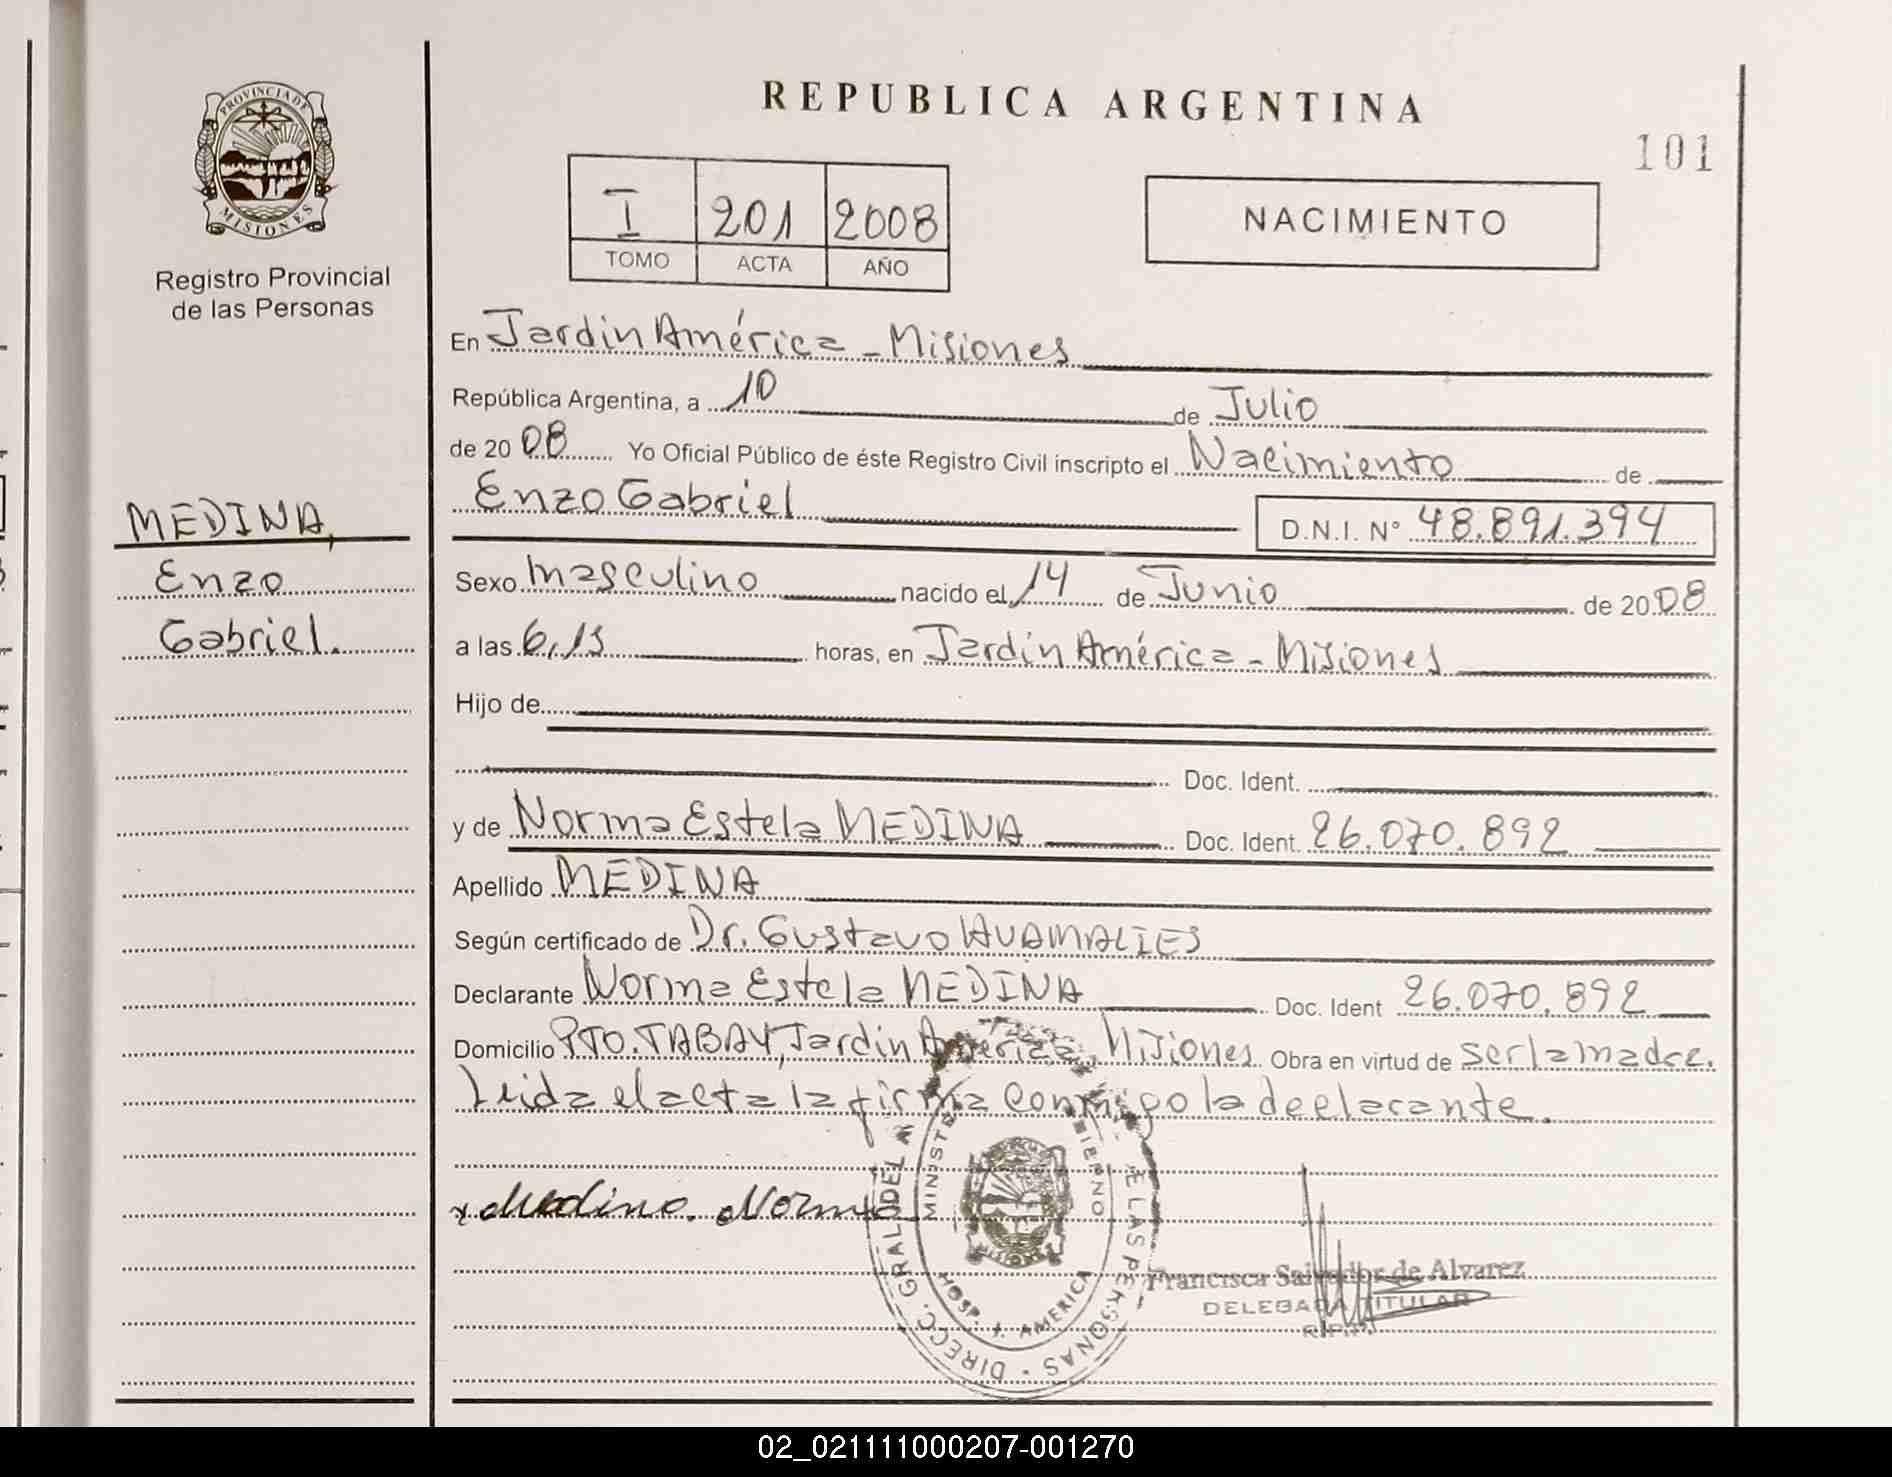 PROVINCIA DE
MISIONES
Registro Provincial
de las Personas
MEDINA,
Enzo
Gabriel.
REPUBLICA ARGENTINA
101
I 201 2008
TOMO ACTA AÑO
NACIMIENTO
En Jardin América - Misiones
República Argentina, a 10 de Julio
de 20 08 Yo Oficial Público de éste Registro Civil inscripto el Nacimiento de
Enzo Gabriel D.N.I. N° 48.891.394
Sexo masculino nacido el 14 de Junio de 20 08
a las 6,15 horas, en Jardín América - Misiones
Hijo de
Doc. Ident.
y de Norma Estela MEDINA Doc. Ident. 26.070.892
Apellido MEDINA
Según certificado de Dr. Gustavo HUAMALIES
Declarante Norma Estela MEDINA Doc. Ident 26.070.892
Domicilio PTO. TABAY, Jardín América, Misiones Obra en virtud de ser la madre.
Leida el acta la firma conmigo la declarante.
x Medina. Norma
DIRECC. GRAL DEL DE LAS PERSONAS
HOSP. J. AMERICA
Francisca Salvador de Alvarez
DELEGADA TITULAR
02_021111000207-001270